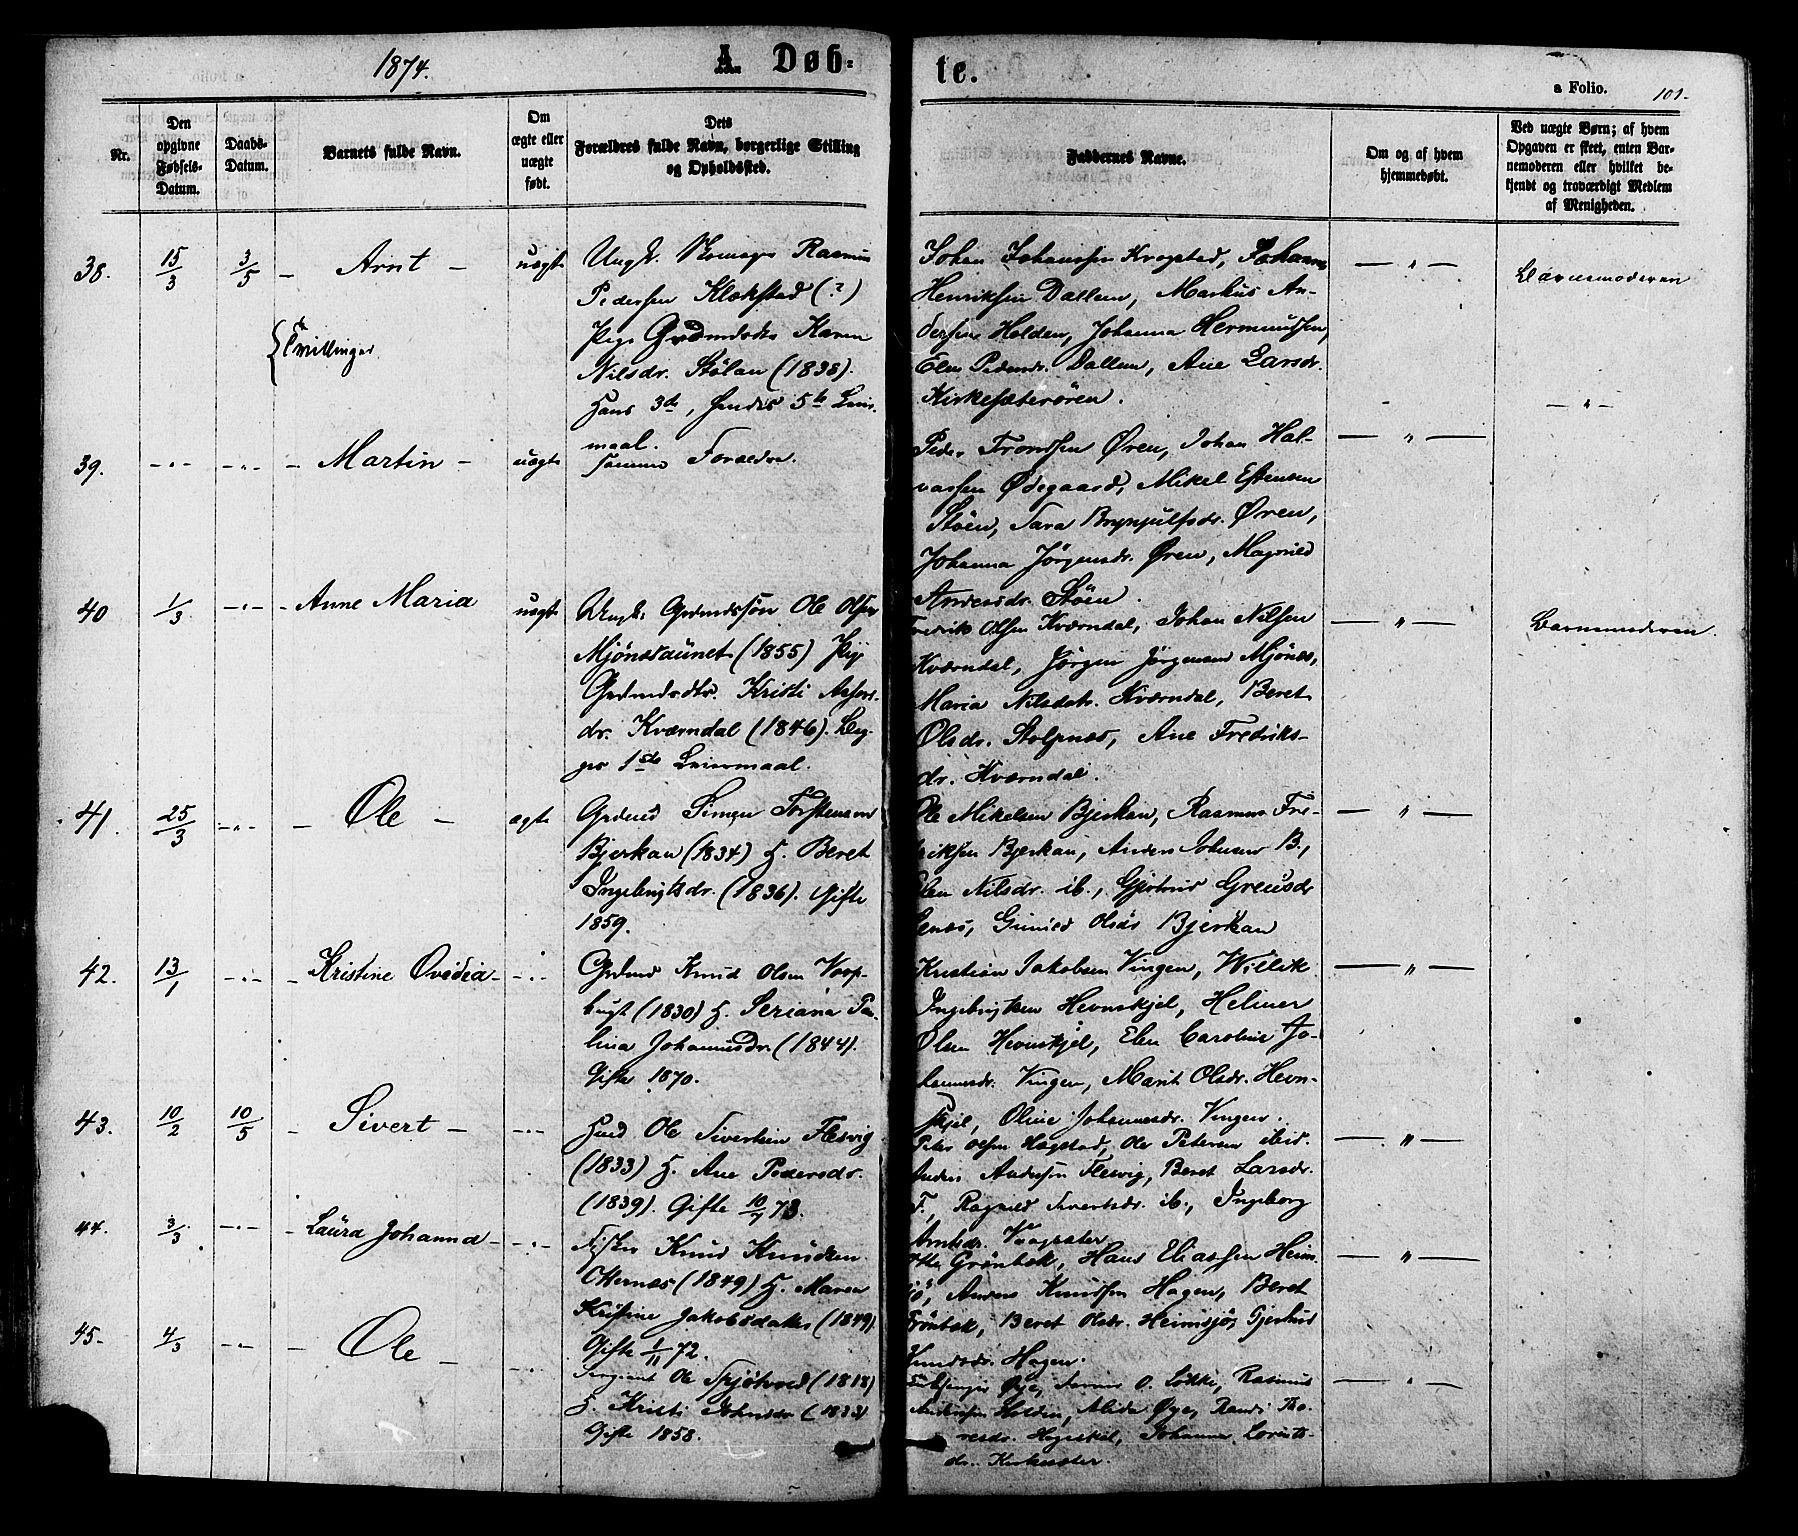 1874.
A. Døb-
te.
a Folio.
101.
Nr.
Den
opgivne
Fødsels-
Datum.
Daabs-
Datum.
Barnets fulde Navn.
Om
ægte eller
uægte
født.
Dets
Forældres fulde Navn, borgerlige Stilling
og Opholdssted.
Faddernes Navne.
Om og af hvem
hjemmedøbt.
Ved uægte Børn; af hvem
Opgaven er skeet, enten Bar-
nemoderen eller hvilket be-
kjendt og troværdigt Medlem
af Menigheden.
38.
15/3
3/5
Arnt
uægte
Ungk. Rasmus
Pedersen Klækstad (?)
Pige Grdmdsdtr. Karen
Nilsdr. Stølan (1838).
Hans 3de, hendes 5te Leier-
maal.
Johan Johanssen Krogstad, Johannes
Henriksen Dallem, Markus An-
dersen Holden, Johanna
Elen Pedersdr. Dallem, Ane Larsdr.
Kirkesæterøren.
— " —
Barnemoderen
{Tvillinger
39.
— " —
— " —
Martin
uægte
samme Forældre.
Peder Trondsen Øren, Johan Hal-
vassen Ødegaard, Mikel Estensen
Støen, Sara Brynjulfsdr. Øren,
Johanna Jörgensdr. Øren, Magnild
Andersdr. Støen.
— " —
— " —
40
1/3
— " —
Anne Maria
uægte
Ungk. Grdmdssøn Ole Olsen
Mjönesaunet (1855) Pige
Grdmdsdtr. Kristi
dr. Kværndal (1846). Beg-
ges 1ste Leiermaal.
Fredrik Olsen Kværndal, Johan Nilsen
Kværndal, Jörgen Jörgensen Mjönes,
Maria Nilsdatr. Kværndal, Beret
Olsdr. Stolpnes, Ane Fredriks-
dr. Kværndal.
— " —
Barnemoderen.
41.
25/3
— " —
Ole
ægte
Grdmd Simen Torstensen
Bjerkan (1834) H. Beret
Ingebrigtsdr. (1836). Gifte
1859.
Ole Mikelsen Bjerkan, Rasmus Fre-
driksen Bjerkan, Anders Johnsen B.,
Elen Nilsdr. ib.,
Gunild Olsdr Bjerkan
— " —
42.
13/1
— " —
Kristine Ovidia
— " —
Grdmd Knud Olsen
(1830) H. Seriana Pau-
lina Johannesdr. (1844).
Gifte 1870.
Kristian Jakobsen Vingen, Willik
Ingebrigtsen Hevnskjel, Helmer
Olsen Hevnskjel, Elen Caroline Jo-
hannesdr. Vingen, Marit Olsdr. Hevn-
skjel, Oline Johannesdr. Vingen.
— " —
43.
10/2
10/5
Sivert
— " —
Husmd Ole Sivertsen Flesvig
(1833) H. Ane Pedersdr.
(1839). Gifte 10/7 73.
Peter Olsen Hagstad, Ole Petersen ibid.
Anders Andersen Flesvig, Beret Larsdr.
F., Ragnild Sivertsdr. ib., Ingeborg
Arntsdr.
— " —
44.
3/3
— " —
Laura Johanna
— " —
Fisker Knud Knudsen
Otternes (1849) H. Maren
Kristine Jakobsdatter (1849)
Gifte 1/11 72.
Grönbæk, Hans Eliassen Heim-
sjö, Anders Knudsen Hagen, Beret
Grönbæk, Beret Olsdr. Heimsjö, Gjertrud
Knudsdr. Hagen.
— " —
45.
4/3
— " —
Ole
— " —
Sergeant Ole (1818)
H. Kristi Johnsdr (1833)
Gifte 1858.
Øye, O. Lökke, Rasmus
Anderssen Holden, Alida Øye, Randi Tho-
resdr. Johanna Lorents-
dr. Kirkesæter.
— " —